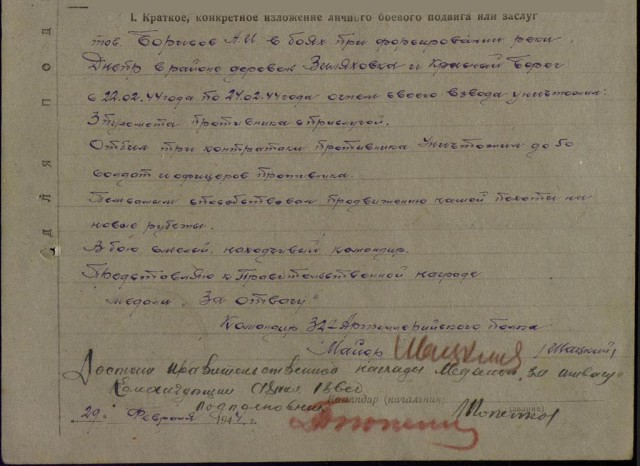 I. Краткое, конкретное изложение личного боевого подвига или заслуг
тов. Борисов А.И в боях при форсировании реки
Днепр в районе деревок и Красный Берег
с 22.02.44 года по 24.02.44 года огнем своего взвода уничтожил:
3 пулемета противника с прислугой.
Отбил три контратаки противника Уничтожил до 50
солдат и офицеров противника.
способствовал продвижению нашей пехоты на
новые рубежы.
В бою смелый, находчивый командир.
Представляю к Правительственной награде
медали „За отвагу"
Командир 32 Артиллерийского Полка
Майор Шацкий /Шацкий/
Достоин правительственной награды Медалью „За отвагу"
Командующий
подполковник Командир (начальник)
(звание)
29. Февраля 194 г.
Для под